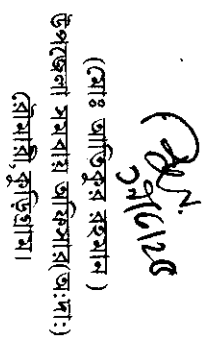 (মোঃ আতিকুর রহমান)
উপজেলা সমবায় অফিসার(অঃদাঃ)
রৌমারী, কুড়িগ্রাম।